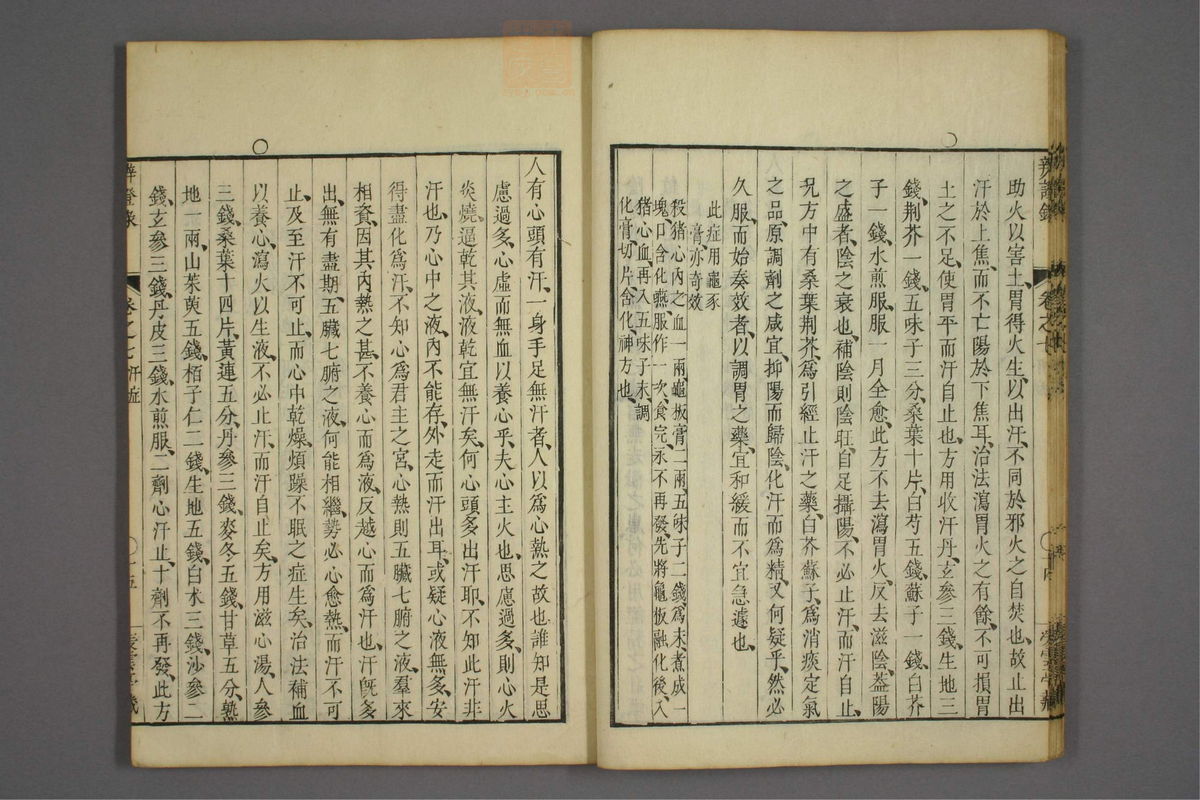 助火以害土胃得火生以出汗不同於邪火之自焚也故止出
汗於上焦而不亡陽於下焦耳治法瀉胃火之有餘不可損胃
土之不足使胃平而汗自止也方用收汗丹玄參三錢生地三
錢荆芥一錢五味子三分桑葉十片白芍五錢蘇子一錢白芥
子一錢水煎服服一月全愈此方不去瀉胃火反去滋陰葢陽
之盛者陰之衰也補陰則陰旺自足攝陽不必止汗而汗自止
况方中有桑葉荆芥爲引經止汗之藥白芥蘇子爲消痰定氣
之品原調劑之咸宜抑陽而歸陰化汗而爲精又何疑乎然必
久服而始奏效者以調胃之藥宜和緩而不宜急遽也
此症用龜豕
膏亦奇效
殺猪心內之血一兩龜板膏二兩五味子二錢爲末煮成一
塊口含化嚥服作一次食完永不再發先將龜板融化後入
猪心血再入五味子末調
化膏切片含化神方也
人有心頭有汗一身手足無汗者人以爲心熱之故也誰知是思
慮過多心虛而無血以養心乎夫心主火也思慮過多則心火
炎燒逼乾其液液乾宜無汗矣何心頭多出汗耶不知此汗非
汗也乃心中之液內不能存外走而汗出耳或疑心液無多安
得盡化爲汗不知心爲君主之宮心熱則五臟七腑之液羣來
相資因其內熱之甚不養心而爲液反越心而爲汗也汗旣多
出無有盡期五臟七腑之液何能相繼勢必心愈熱而汗不可
止及至汗不可止而心中乾燥煩躁不眠之症生矣治法補血
以養心瀉火以生液不必止汗而汗自止矣方用滋心湯人參
三錢桑葉十四片黃連五分丹參三錢麥冬五錢甘草五分熟
地一兩山茱萸五錢栢子仁二錢生地五錢白朮三錢沙參二
錢玄參三錢丹皮三錢水煎服二劑心汗止十劑不再發此方
辨證錄
卷之七汗症
十五